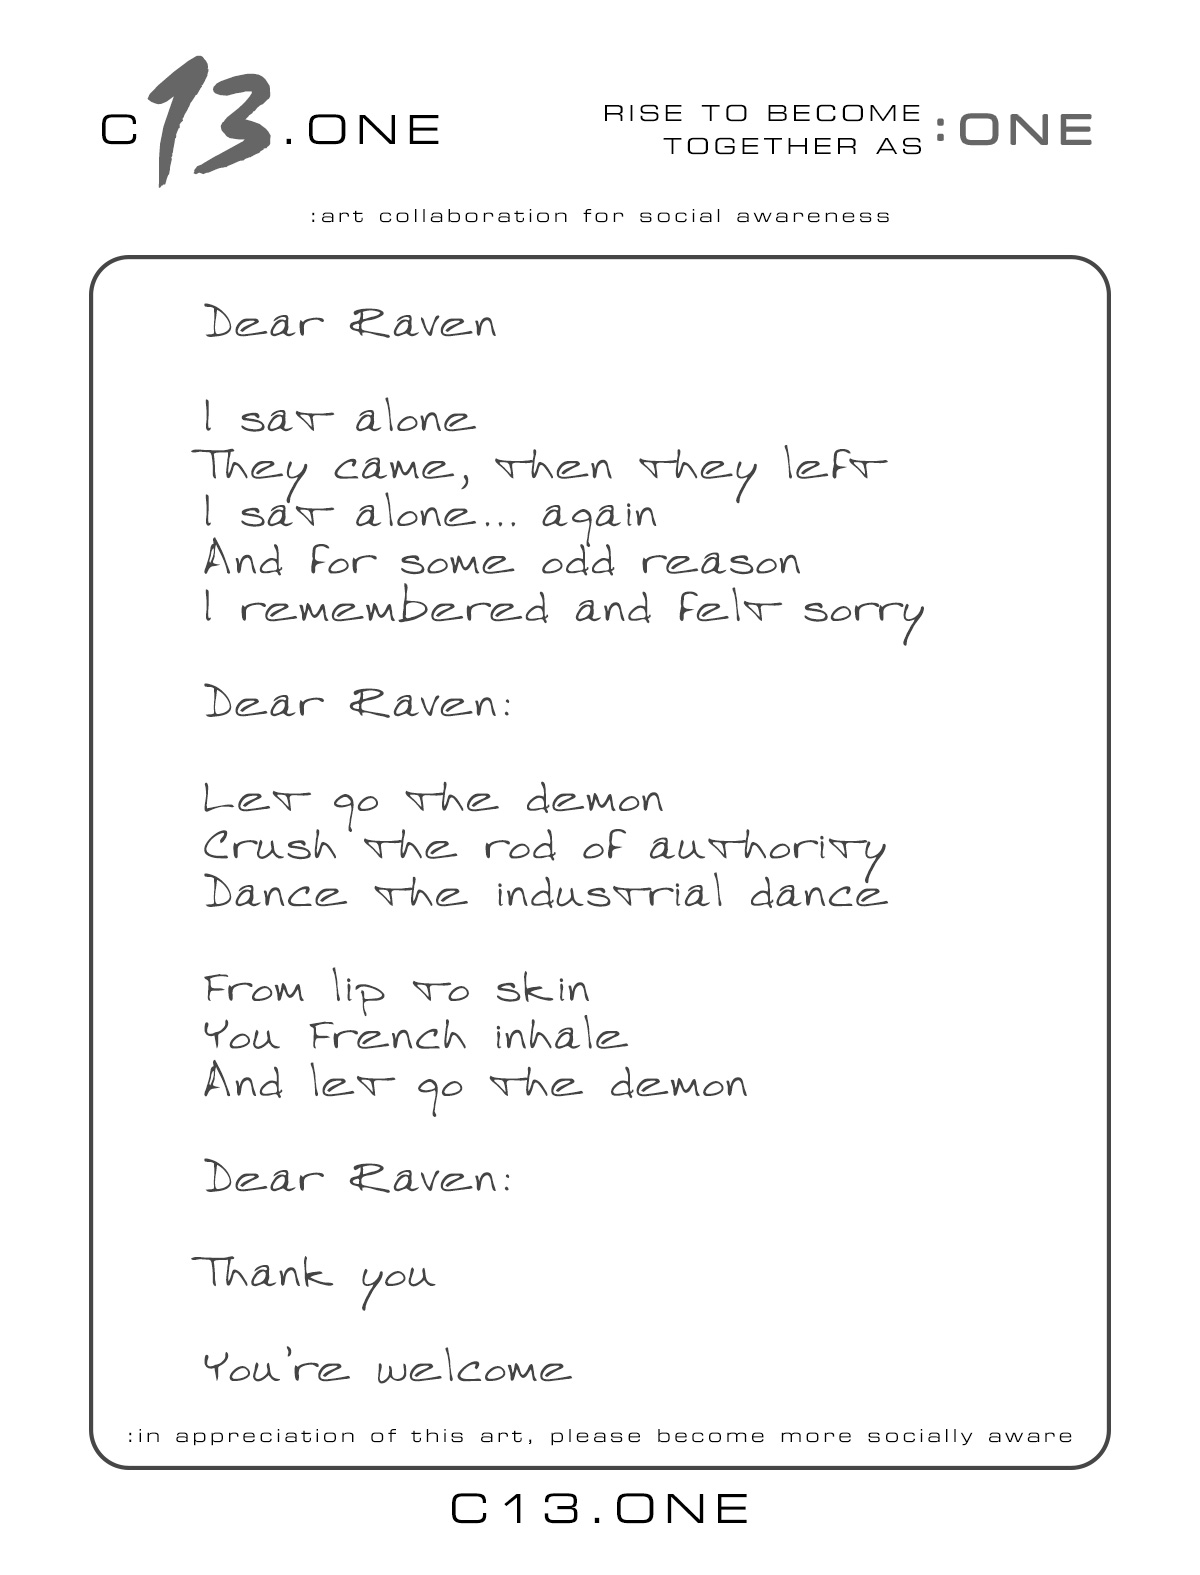 C13.ONE
RISE TO BECOME
TOGETHER AS :ONE
:art collaboration for social awareness
Dear Raven
I sat alone
They came, then they left
I sat alone... again
And for some odd reason
I remembered and felt sorry
Dear Raven:
Let go the demon
Crush the rod of authority
Dance the industrial dance
From lip to skin
You French inhale
And let go the demon
Dear Raven:
Thank you
You're welcome
:in appreciation of this art, please become more socially aware
C13.ONE